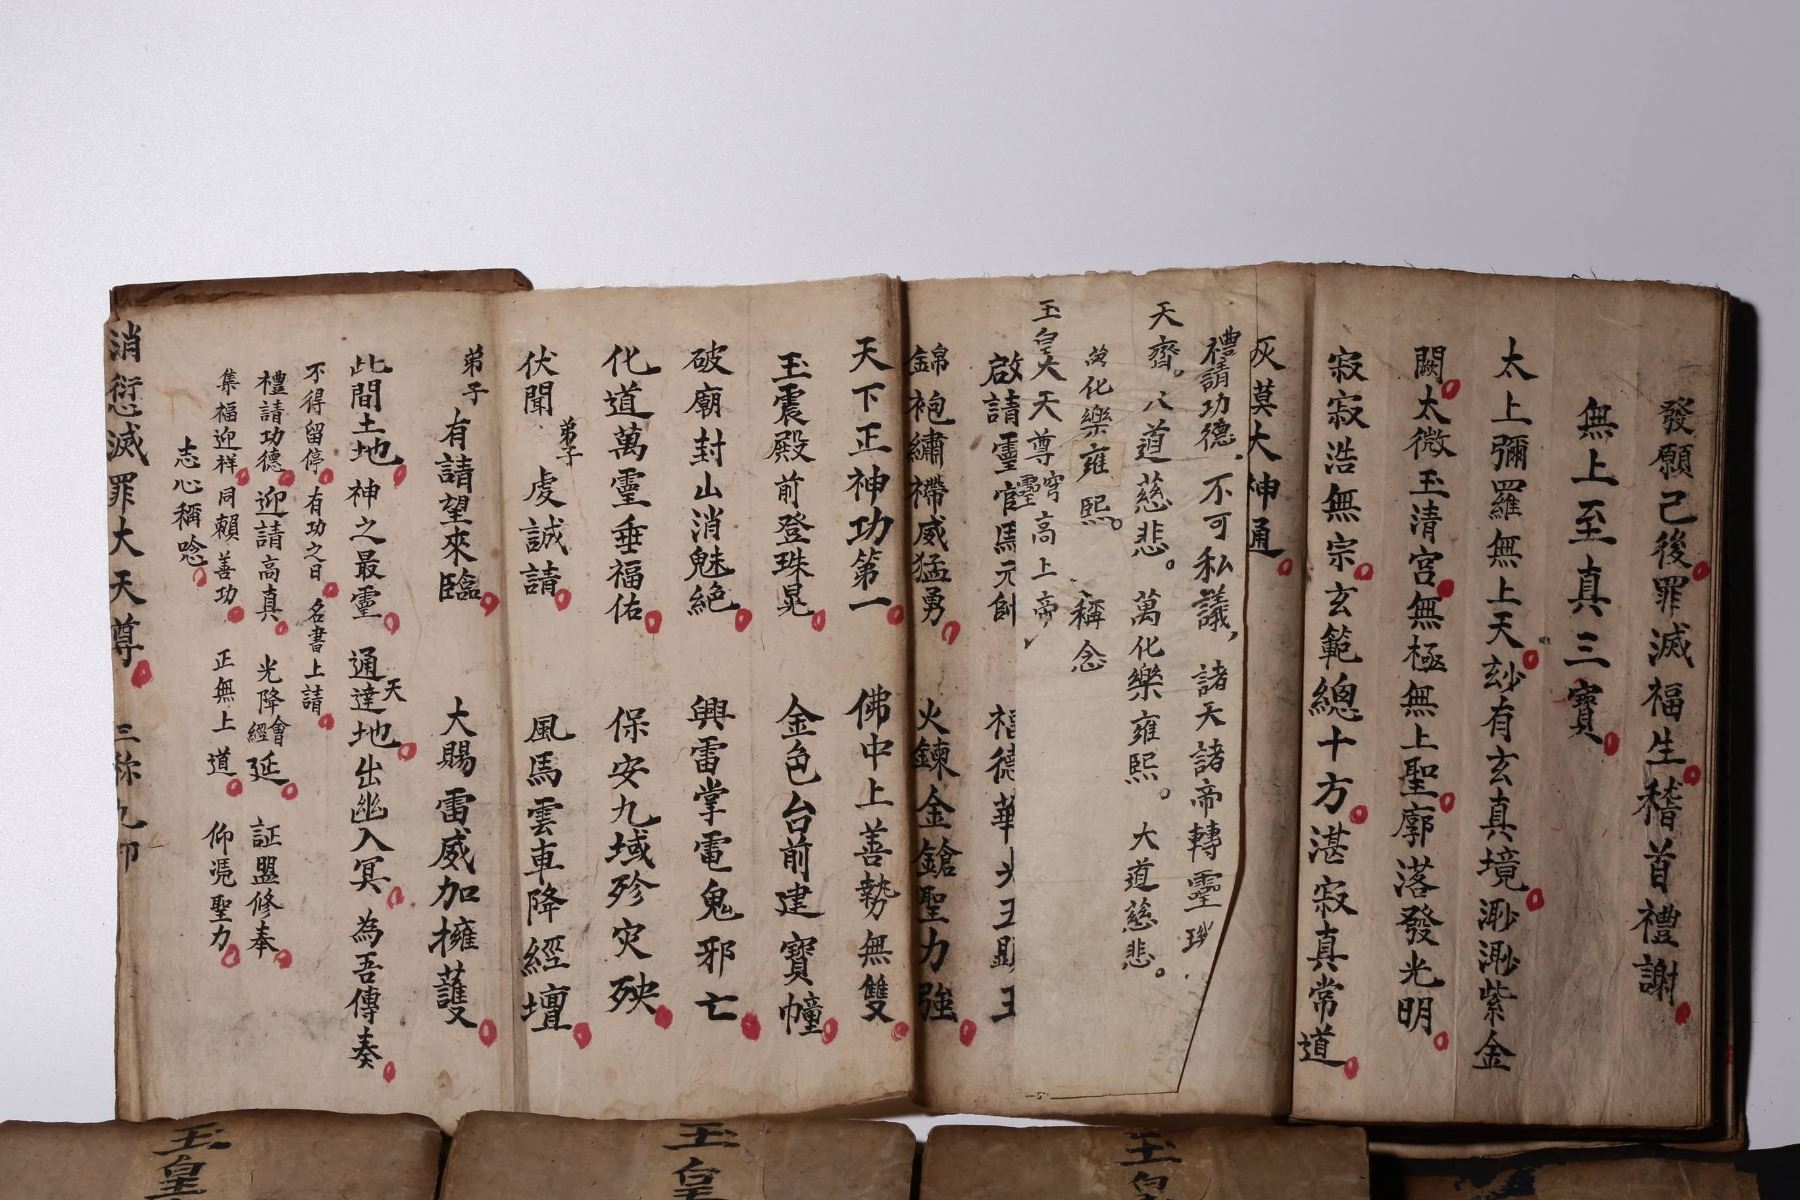 發願已後罪滅福生稽首禮謝
無上至真三寶
太上彌羅無上天玅有玄真境渺渺紫金
闕太微玉清宮無極無上聖廓落發光明
寂寂浩無宗玄範總十方湛寂真常道
灰莫大神通
禮請功德不可私議諸天諸帝轉靈
天齊八道慈悲。萬化樂雍熙。大道慈悲。
萬化樂雍熙。稱念
玉皇大天尊穹靈高上帝
啟請靈官馬元帥 福德華光五顯王
錦袍繡襷威猛勇 火鍊金鎗聖力強
天下正神功第一 佛中上善勢無雙
玉震殿前登珠晃 金色台前建寶幢
破廟封山消魅絕 興雷掌電鬼邪亡
化道萬靈垂福佑 保安九域殄灾殃
伏聞弟子虔誠請 風馬雲車降經壇
弟子有請望來臨 大賜雷威加擁護
此間土地神之最靈 通天達地出幽入冥 為吾傳奏
不得留停有功之日名書上請
禮請功德迎請高真光降經會延 証盟修奉
集福迎祥同賴善功 正無上道 仰凴聖力
志心稱唸
消愆滅罪大天尊 三称九叩
玉皇
玉皇
玉皇